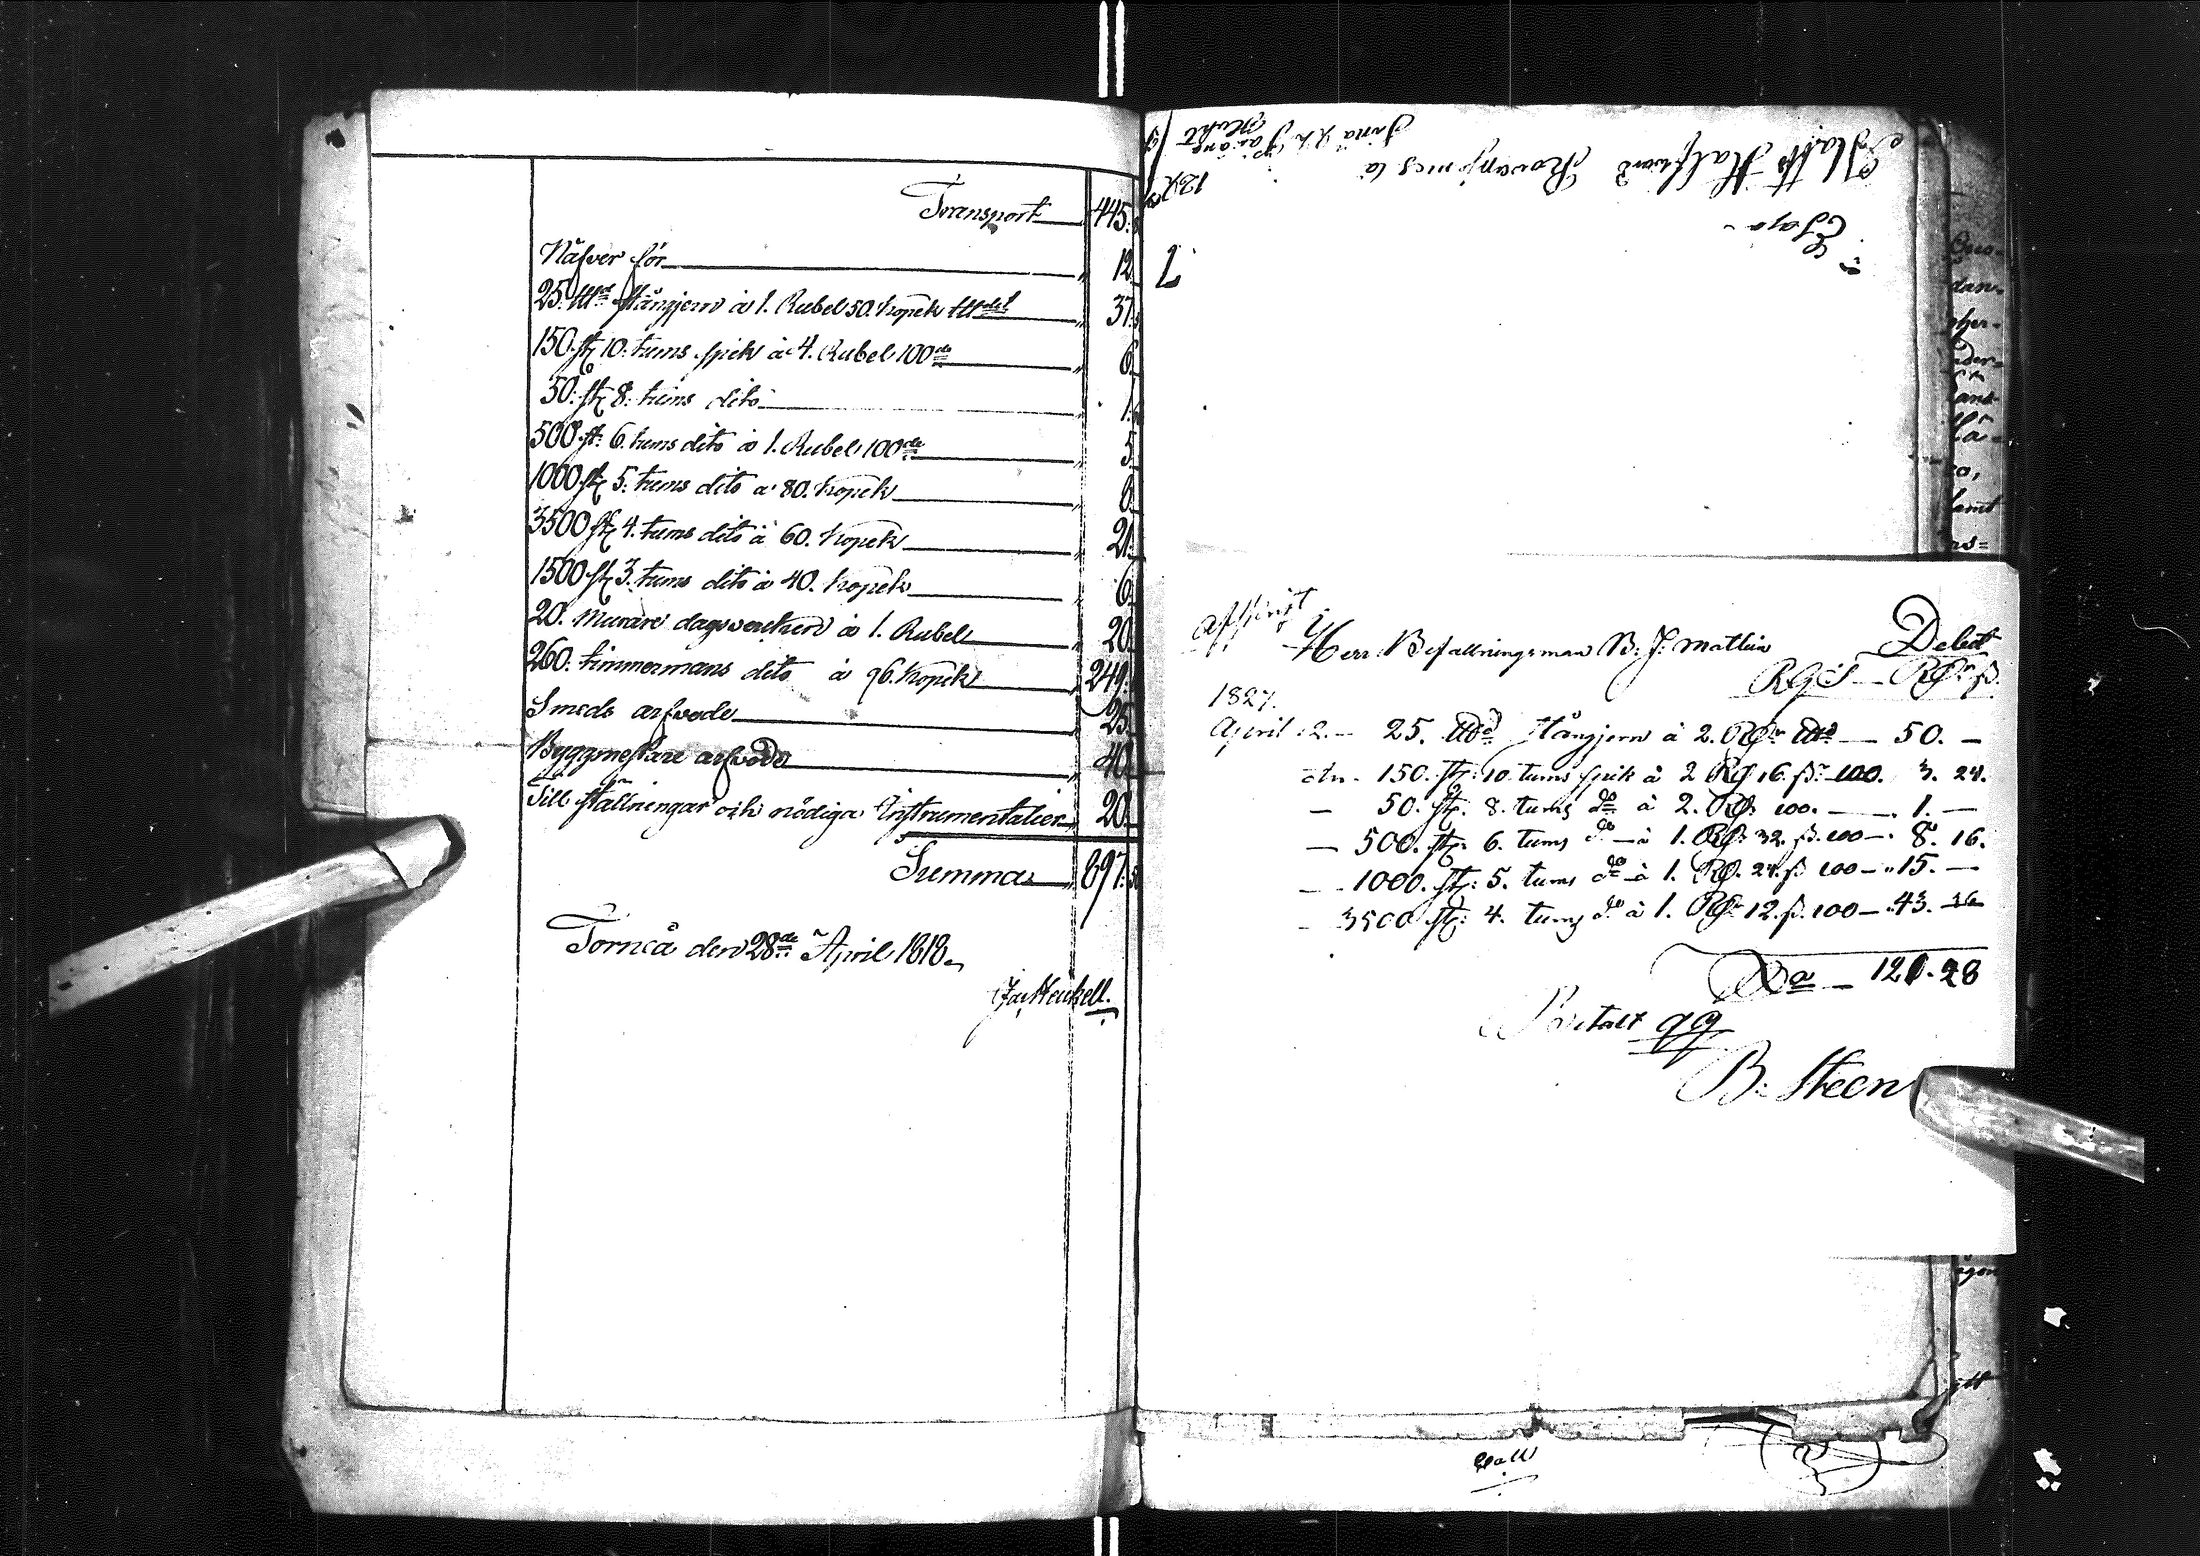 Transport 445.
Näfver för 12.
25. lltt stångjern à 1. Rubel 50. kopek 37.
150. st. 10. tums spik à 4. Rubel 100de 6.
50. st. 8. tums dito 1.
500. st. 6. tums dito à 1. Rubel 100de 5.
1000. st. 5. tums dito à 80. kopek 8.
3500 st. 4. tums dito à 60. kopek 21.
1500 st. 3. tums dito à 40. kopek 6.
20. murare dagsverken à 1. Rubel 20.
260. timmermans dito à 96. kopek 249.
Smeds arfvode 25.
Byggmestare arfvode 40.
Till ställningar och nödiga Instrumentalier 20.
Summa 897.
Torneå den 28de April 1818.
Jac Heickell.
Matts Halfvard Rovanjemes
12
7
afskrift
Herr Befallningsman B. J. Mathlin Debet
1827. RGS RGr ß.
April 2. 25. stångjern à 2. RGr 50. —
dn. 150. st. 10. tums spik à 2 RG 16. ß. 100. 3. 24.
— 50. st. 8. tums do à 2. RG 100. — 1. —
— 500. st. 6. tums do à 1. RG 32. ß. 100 — 8. 16.
— 1000. st. 5. tums do à 1. RG. 24. ß 100 — 15. —
— 3500 st. 4. tums do à 1. RGr 12. ß. 100 — 43. 36
121. 28
Betalt qq
B: Steen